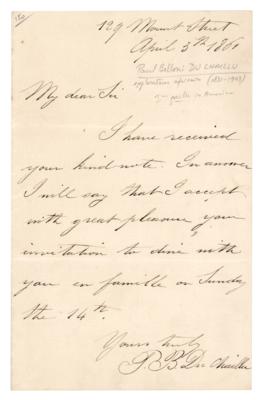 129 Mount Street
April 5th 1861
Paul Belloni DU CHAILLU
My dear Sir
I have received
your kind note. In answer
I will say that I accept
with great pleasure your
invitation to dine with
you en famille on Sunday
the 14th.
Yours truly
P. B. Du Chaillu